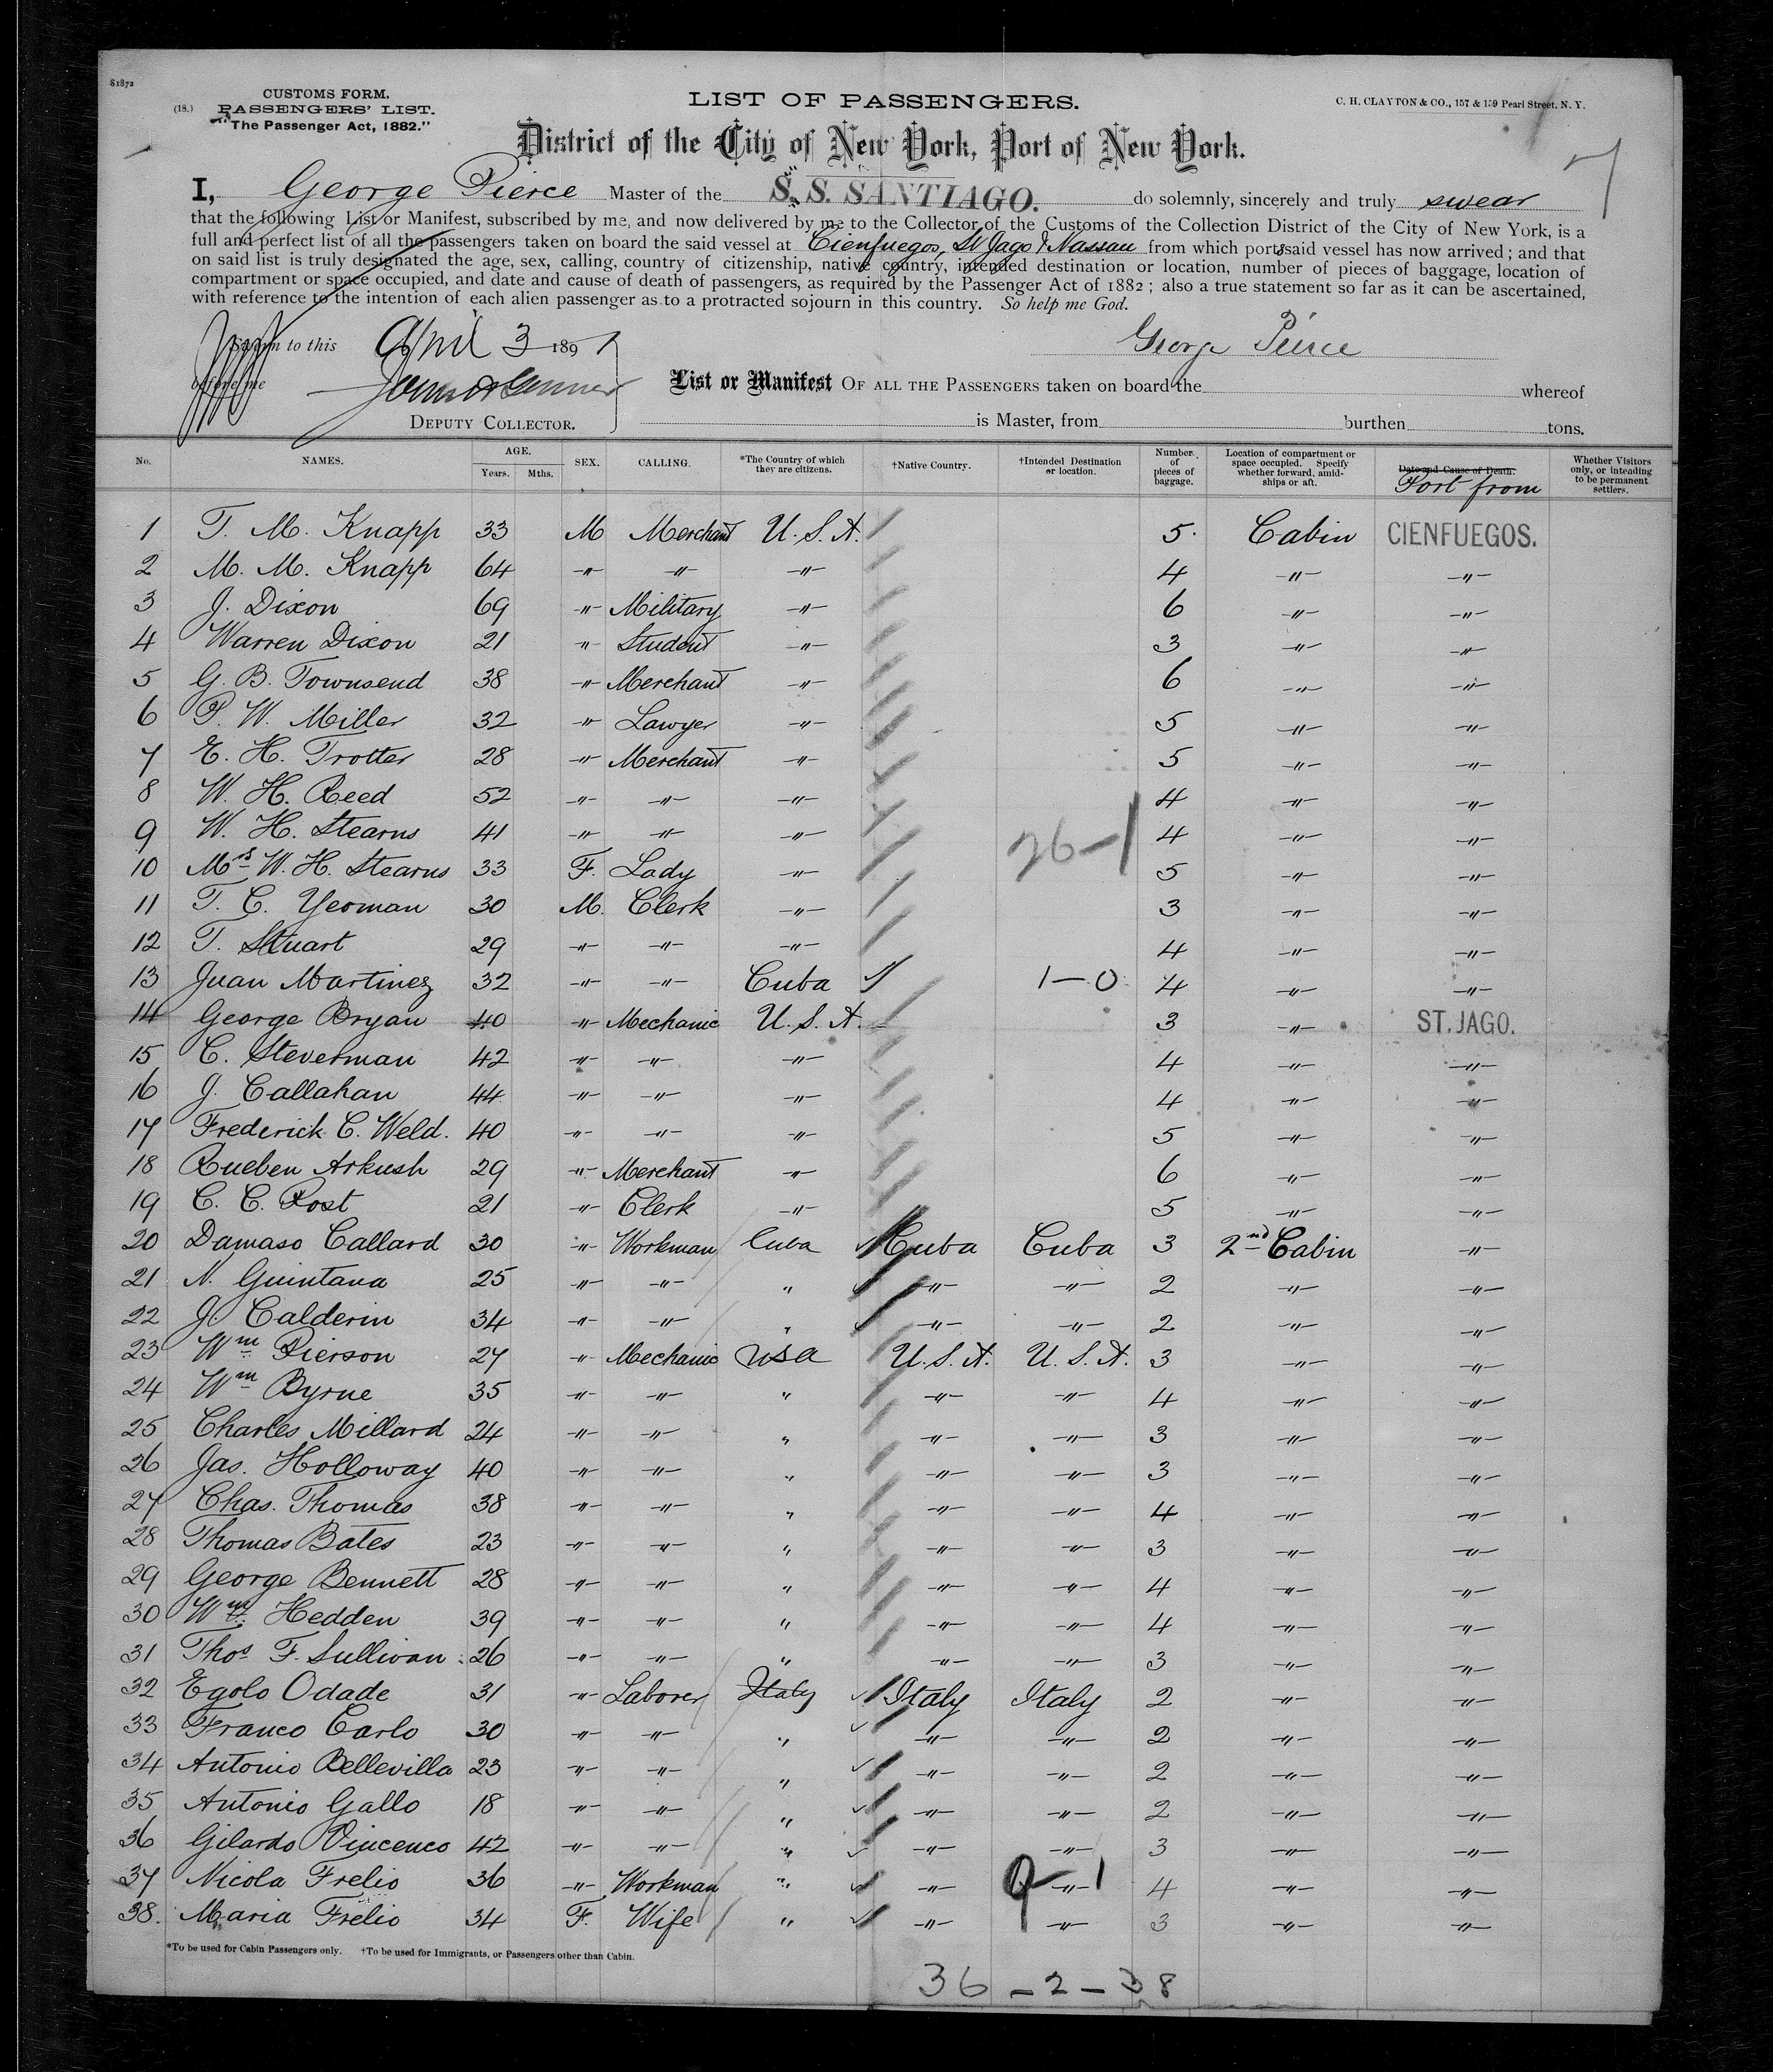 81872
CUSTOMS FORM.
(18.) PASSENGERS' LIST.
"The Passenger Act, 1882."
LIST OF PASSENGERS.
C. H. CLAYTON & CO., 157 & 159 Pearl Street, N. Y.
District of the City of New York, Port of New York.
I, George Pierce Master of the S. S. SANTIAGO. do solemnly, sincerely and truly swear
that the following List or Manifest, subscribed by me, and now delivered by me to the Collector of the Customs of the Collection District of the City of New York, is a
full and perfect list of all the passengers taken on board the said vessel at Cienfuegos, St Jago & Nassau from which ports said vessel has now arrived; and that
on said list is truly designated the age, sex, calling, country of citizenship, native country, intended destination or location, number of pieces of baggage, location of
compartment or space occupied, and date and cause of death of passengers, as required by the Passenger Act of 1882; also a true statement so far as it can be ascertained,
with reference to the intention of each alien passenger as to a protracted sojourn in this country. So help me God.
Sworn to this April 3 1897
George Pierce
before me
List or Manifest OF ALL THE PASSENGERS taken on board the whereof
DEPUTY COLLECTOR.
is Master, from burthen tons.
No. NAMES. AGE. Years. Mths. SEX. CALLING. *The Country of which they are citizens. †Native Country. †Intended Destination or location. Number of pieces of baggage. Location of compartment or space occupied. Specify whether forward, amidships or aft. Date and Cause of Death. Port from Whether Visitors only, or intending to be permanent settlers.
1 T. M. Knapp 33 M Merchant U. S. A. 5. Cabin CIENFUEGOS.
2 M. M. Knapp 64 " " " 4 " "
3 J. Dixon 69 " Military " 6 " "
4 Warren Dixon 21 " Student " 3 " "
5 G. B. Townsend 38 " Merchant " 6 " "
6 P. W. Miller 32 " Lawyer " 5 " "
7 E. H. Trotter 28 " Merchant " 5 " "
8 W. H. Reed 52 " " " 4 " "
9 W. H. Stearns 41 " " " 26-1 4 " "
10 Mrs W. H. Stearns 33 F. Lady " 5 " "
11 T. C. Yeoman 30 M. Clerk " 3 " "
12 T. Stuart 29 " " " 4 " "
13 Juan Martinez 32 " " Cuba 1-0 4 " "
14 George Bryan 40 " Mechanic U. S. A. 3 " ST. JAGO.
15 C. Steverman 42 " " " 4 " "
16 J. Callahan 44 " " " 4 " "
17 Frederick C. Weld. 40 " " " 5 " "
18 Rueben Arkush 29 " Merchant " 6 " "
19 C. C. Post 21 " Clerk " 5 " "
20 Damaso Callard 30 " Workman Cuba Cuba Cuba 3 2nd Cabin "
21 N. Guintana 25 " " " " " 2 " "
22 J. Calderin 34 " " " " " 2 " "
23 Wm Pierson 27 " Mechanic USA U. S. A. U. S. A. 3 " "
24 Wm Byrne 35 " " " " " 4 " "
25 Charles Millard 24 " " " " " 3 " "
26 Jas. Holloway 40 " " " " " 3 " "
27 Chas. Thomas 38 " " " " " 4 " "
28 Thomas Bates 23 " " " " " 3 " "
29 George Bennett 28 " " " " " 4 " "
30 Wm Hedden 39 " " " " " 4 " "
31 Thos F. Sullivan 26 " " " " " 3 " "
32 Egolo Odade 31 " Laborer Italy Italy Italy 2 " "
33 Franco Carlo 30 " " " " " 2 " "
34 Antonio Bellevilla 23 " " " " " 2 " "
35 Antonio Gallo 18 " " " " " 2 " "
36 Gilardo Vincenco 42 " " " " " 3 " "
37 Nicola Frelio 36 " Workman " " " 9-1 4 " "
38. Maria Frelio 34 F. Wife " " " 3 " "
*To be used for Cabin Passengers only. †To be used for Immigrants, or Passengers other than Cabin.
36 - 2 - 38